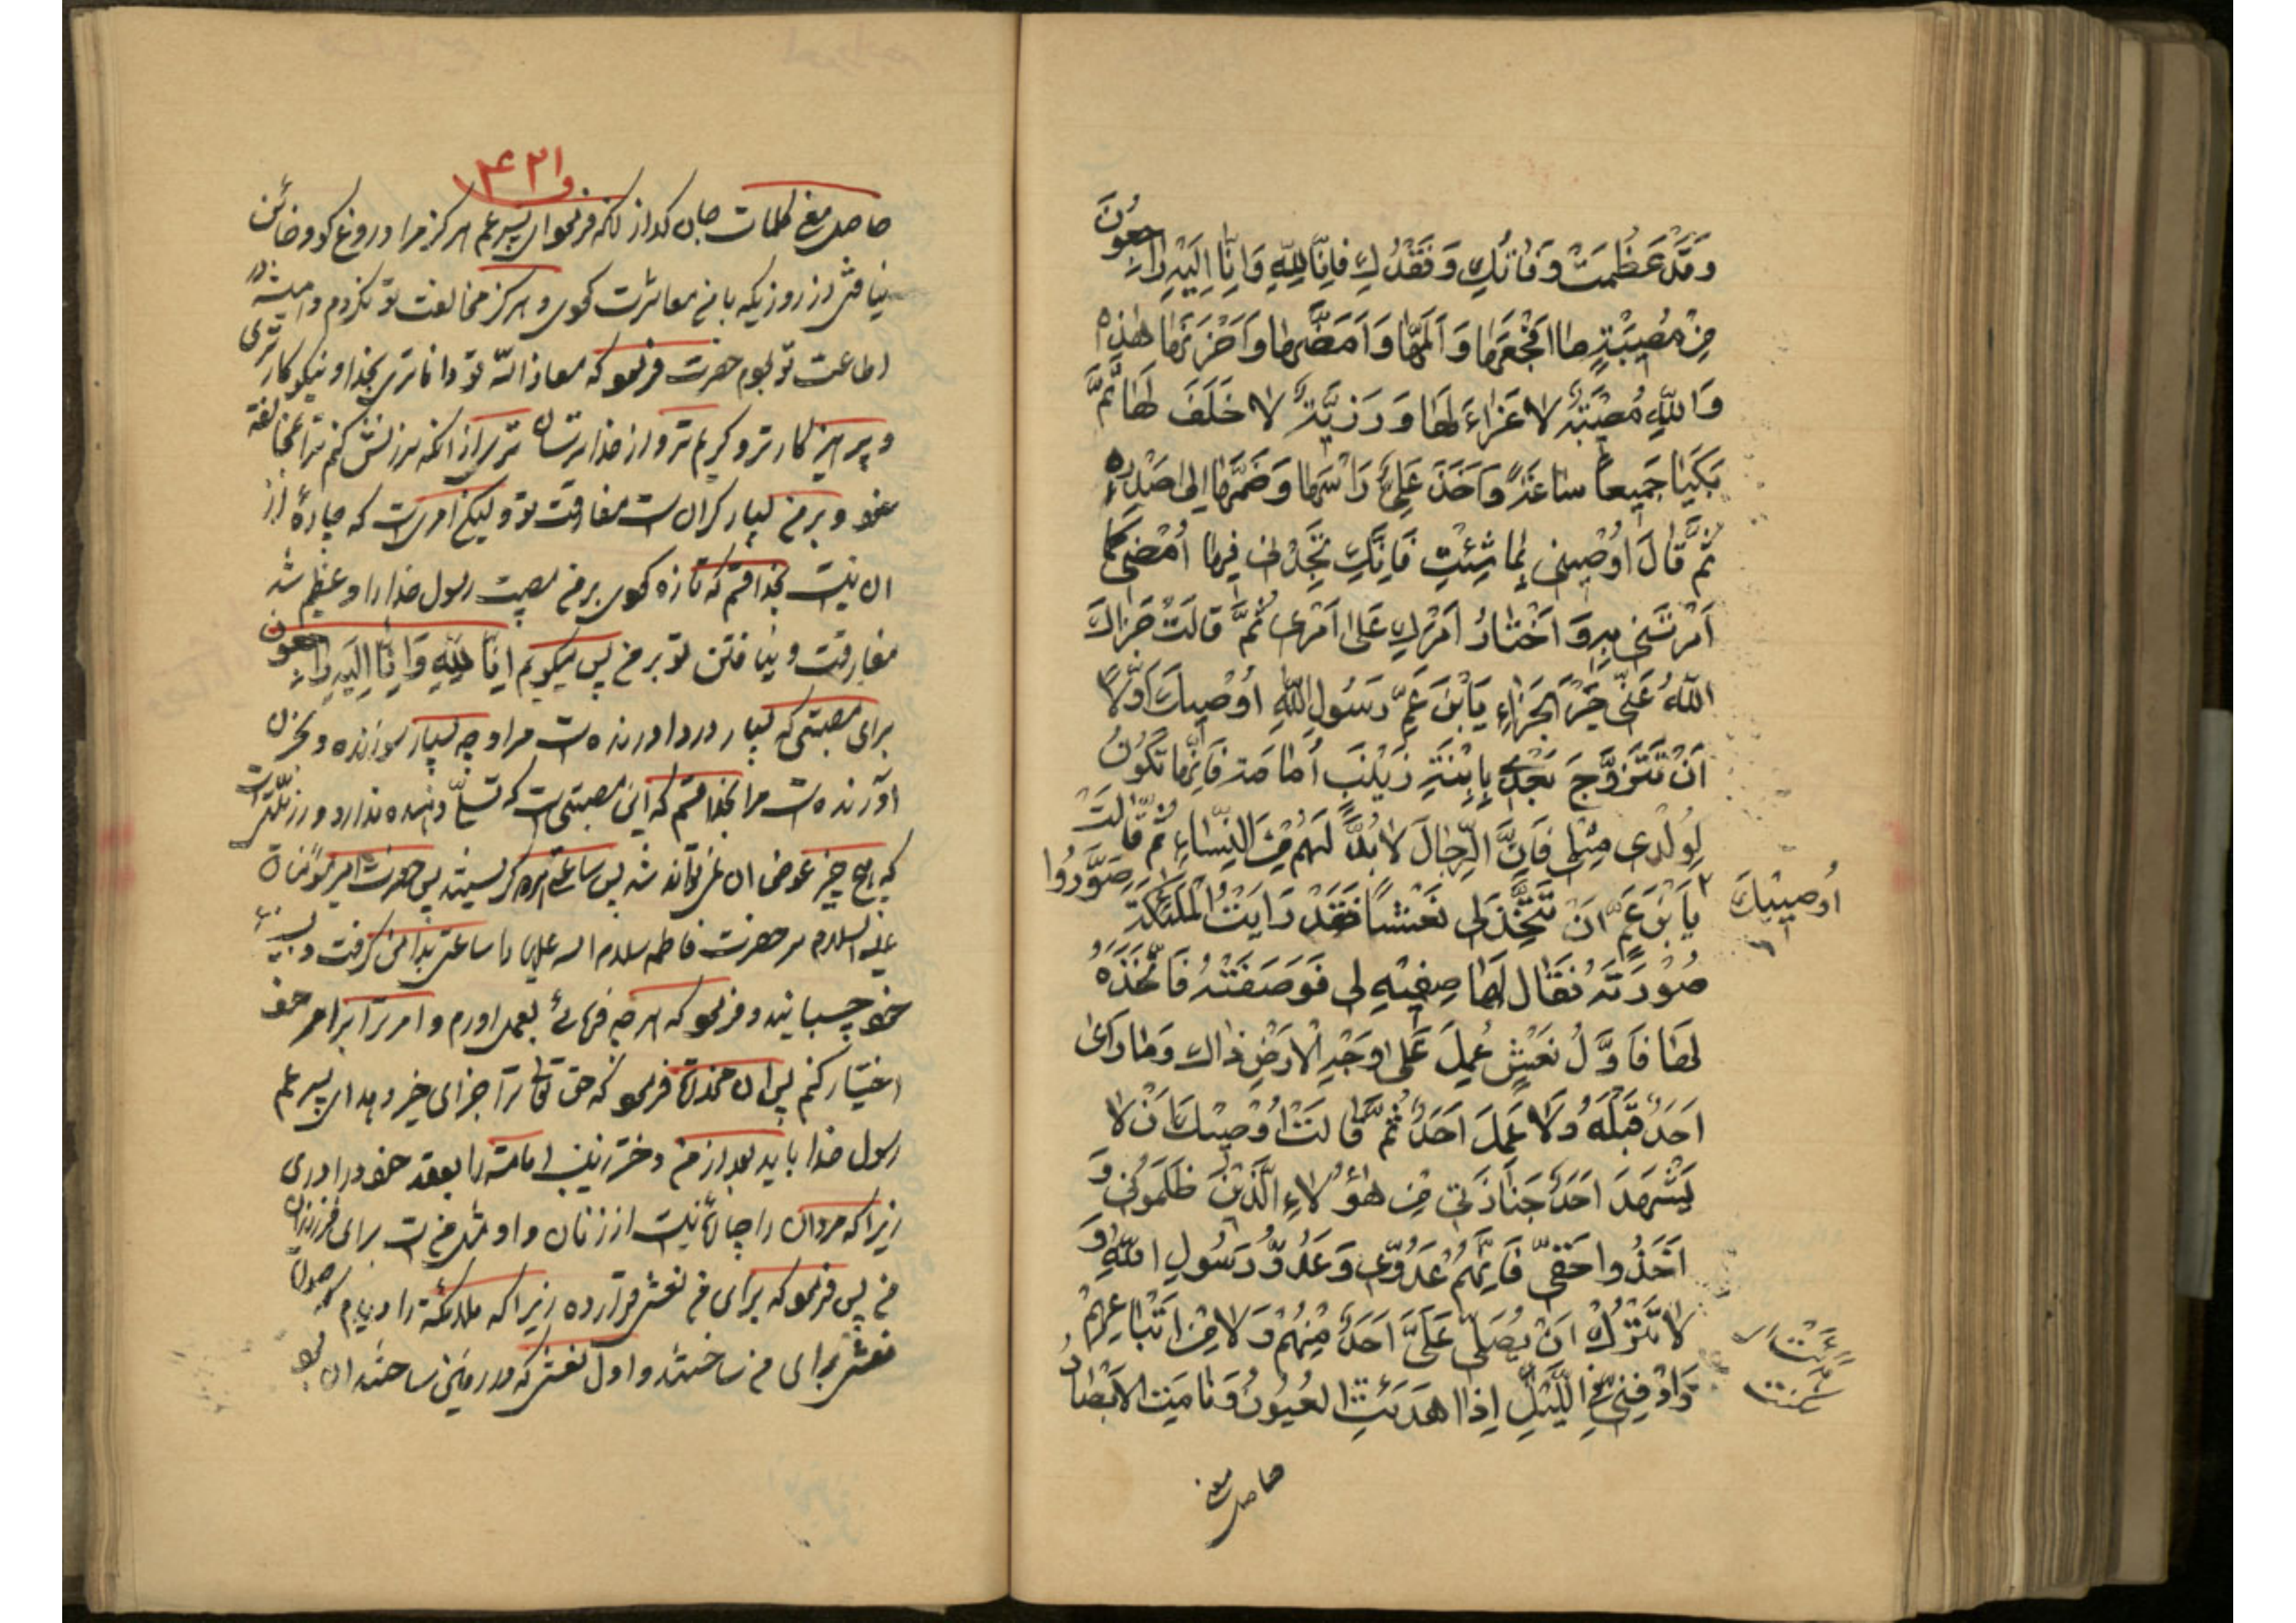 وَقَدْ عَظُمَتْ وَفَاتُكِ وَفَقْدُكِ فَاِنَّا لِلّٰهِ وَاِنَّا اِلَيْهِ رَاجِعُونَ
مِنْ مُصِيبَةٍ مَا اَفْجَعَهَا وَاَلَمَّهَا وَاَمَضَّهَا وَاَحْزَنَهَا هٰذِهِ
وَاللّٰهِ مُصِيبَةٌ لَا عَزَاءَ لَهَا وَرَزِيَّةٌ لَا خَلَفَ لَهَا ثُمَّ
بَكَيَا جَمِيعاً سَاعَةً وَاَخَذَ عَلِيٌّ رَاْسَهَا وَضَمَّهَا اِلىٰ صَدْرِهِ
ثُمَّ قَالَ اُوْصِينِى بِمَا شِئْتِ فَاِنَّكِ تَجِدْنِى فِيهَا اُمْضِى كَمَا
اَمَرْتَنِى بِهِ وَاَخْتَارُ اَمْرَكِ عَلىٰ اَمْرِى ثُمَّ قَالَتْ جَزَاكَ
اللّٰهُ عَنِّى خَيْرَ الْجَزَاءِ يَابْنَ عَمِّ رَسُولِ اللّٰهِ اُوْصِيكَ اَوَّلًا
اَنْ تَتَزَوَّجَ بَعْدِى بِابْنَةِ زَيْنَبَ اُمَامَةَ فَاِنَّهَا تَكُونُ
لِوُلْدِى مِثْلِى فَاِنَّ الرِّجَالَ لَابُدَّ لَهُمْ مِنَ النِّسَاءِ ثُمَّ قَالَتْ
اُوصِيْكَ
يَابْنَ عَمِّ اَنْ تَتَّخِذَ لِى نَعْشاً فَقَدْ رَاَيْتُ الْمَلٰئِكَةَ صَوَّرُوا
صُوْرَتَهُ فَقَالَ لَهَا صِفِيْهِ لِى فَوَصَفَتْهُ فَاتَّخَذَهُ
لَهَا فَاَوَّلُ نَعْشٍ عُمِلَ عَلىٰ وَجْهِ الْاَرْضِ ذَاكَ وَمَا رَاَىٰ
اَحَدٌ قَبْلَهُ وَلَا عَمِلَ اَحَدٌ ثُمَّ قَالَتْ اُوْصِيْكَ اَنْ لَا
يَشْهَدَ اَحَدٌ جَنَازَتِى مِنْ هٰؤُلَاءِ الَّذِيْنَ ظَلَمُونِى وَ
اَخَذُوا حَقِّى فَاِنَّهُمْ عَدُوِّى وَعَدُوُّ رَسُولِ اللّٰهِ وَ
لَا تَتْرُكْ اَنْ يُصَلِّىَ عَلَىَّ اَحَدٌ مِنْهُمْ وَلَا مِنْ اَتْبَاعِهِمْ
وَادْفِنِّى فِى اللَّيْلِ اِذَا هَدَئَتِ الْعُيُونُ وَنَامَتِ الْاَبْصَارُ
حاصل معنى
۴۲۱
حاصل معنی کلمات جان گداز آنکه فرمود ای پسر عم هرگز مرا دروغ گو و خائن
نیافتی از روزیکه با من معاشرت کردی و هرگز مخالفت تو نکردم و همیشه در
اطاعت تو بودم حضرت فرمود که معاذ الله تو داناتری بخدا و نیکوکارتری
و پرهیزکارتر و کریم تر و از خدا ترسان تری از انکه سرزنش کنم ترا بمخالفة
خود و بر من بسیار گران است مفارقت تو ولیکن امریست که چارهٔ از
ان نیست بخدا قسم که تازه کردی بر من مصیبت رسول خدا را و عظیم شد
مفارقت و نیافتن تو بر من پس میگویم اِنَّا لِلّٰهِ وَاِنَّا اِلَيْهِ رَاجِعُون
برای مصیبتی که بسیار دردآورنده است مرا و چه بسیار سوزنده و بحزن
اورنده است مرا بخدا قسم که این مصیبتی است که تسلی دهنده ندارد و
که هیچ چیز عوض ان نمی تواند شد پس ساعتی هر دو گریستند پس حضرت امیر مؤمنان
علیه السلام سر حضرت فاطمه سلام الله علیها را ساعتی بدامن گرفت و بسینهٔ
خود چسبانید و فرمود که هر چه فرمائی بعمل اورم و امر ترا بر امر خود
اختیار کنم پس ان مخدره فرمود که حق تعالی ترا جزای خیر دهد ای پسر عم
رسول خدا باید بعد از من دختر زینب امامه را بعقد خود دراوری
زیرا که مردان را چارهٔ نیست از زنان و او مثل من است برای فرزندان
من پس فرمود که برای من نعشی قرار ده زیرا که ملائکه را دیدم که صورت
نعش برای من ساختند و اول نعشی که در زمین ساختند ان بود